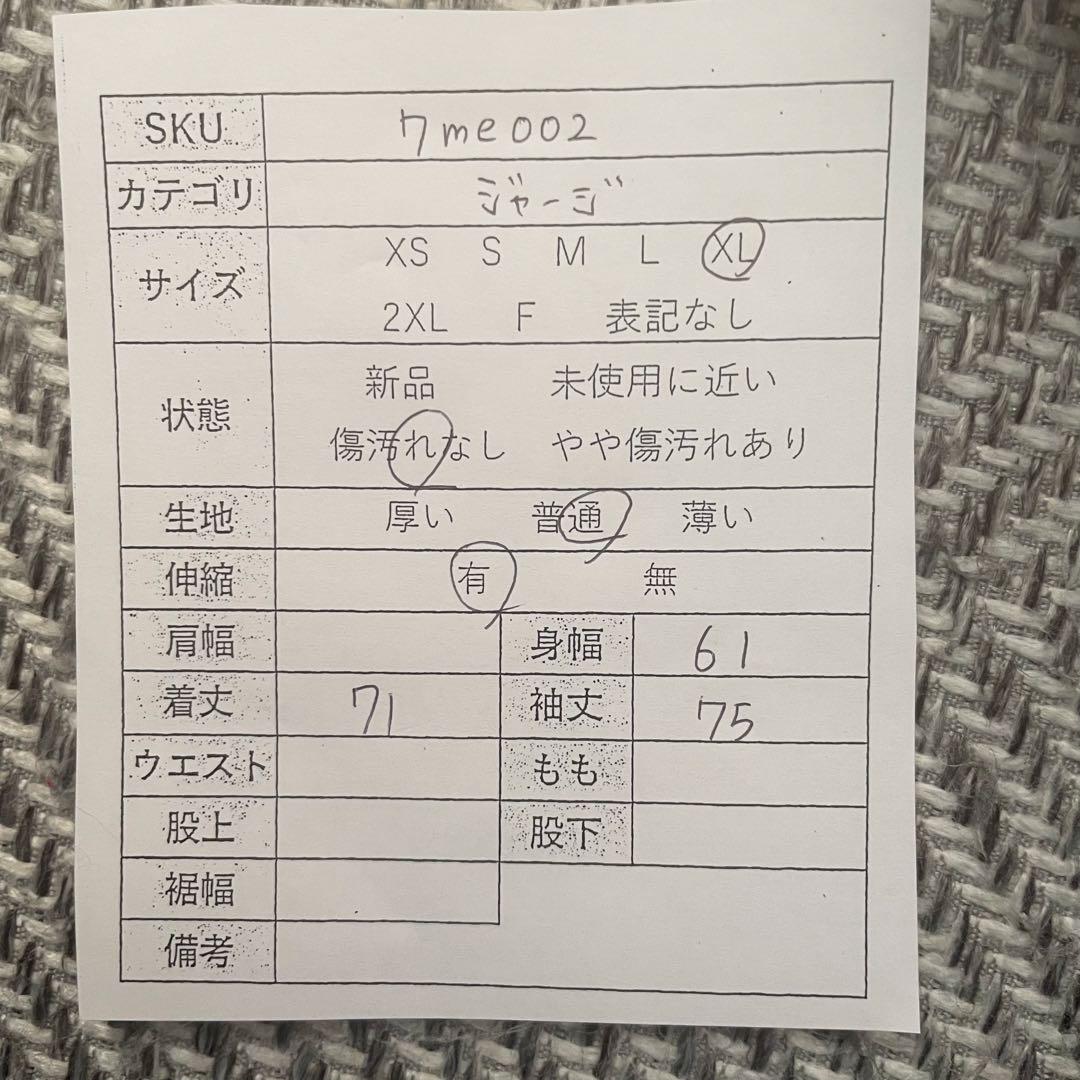 SKU 7me002
カテゴリ ジャージ
サイズ XS S M L XL
2XL F 表記なし
状態 新品 未使用に近い
傷汚れなし やや傷汚れあり
生地 厚い 普通 薄い
伸縮 有 無
肩幅 身幅 61
着丈 71 袖丈 75
ウエスト もも
股上 股下
裾幅
備考